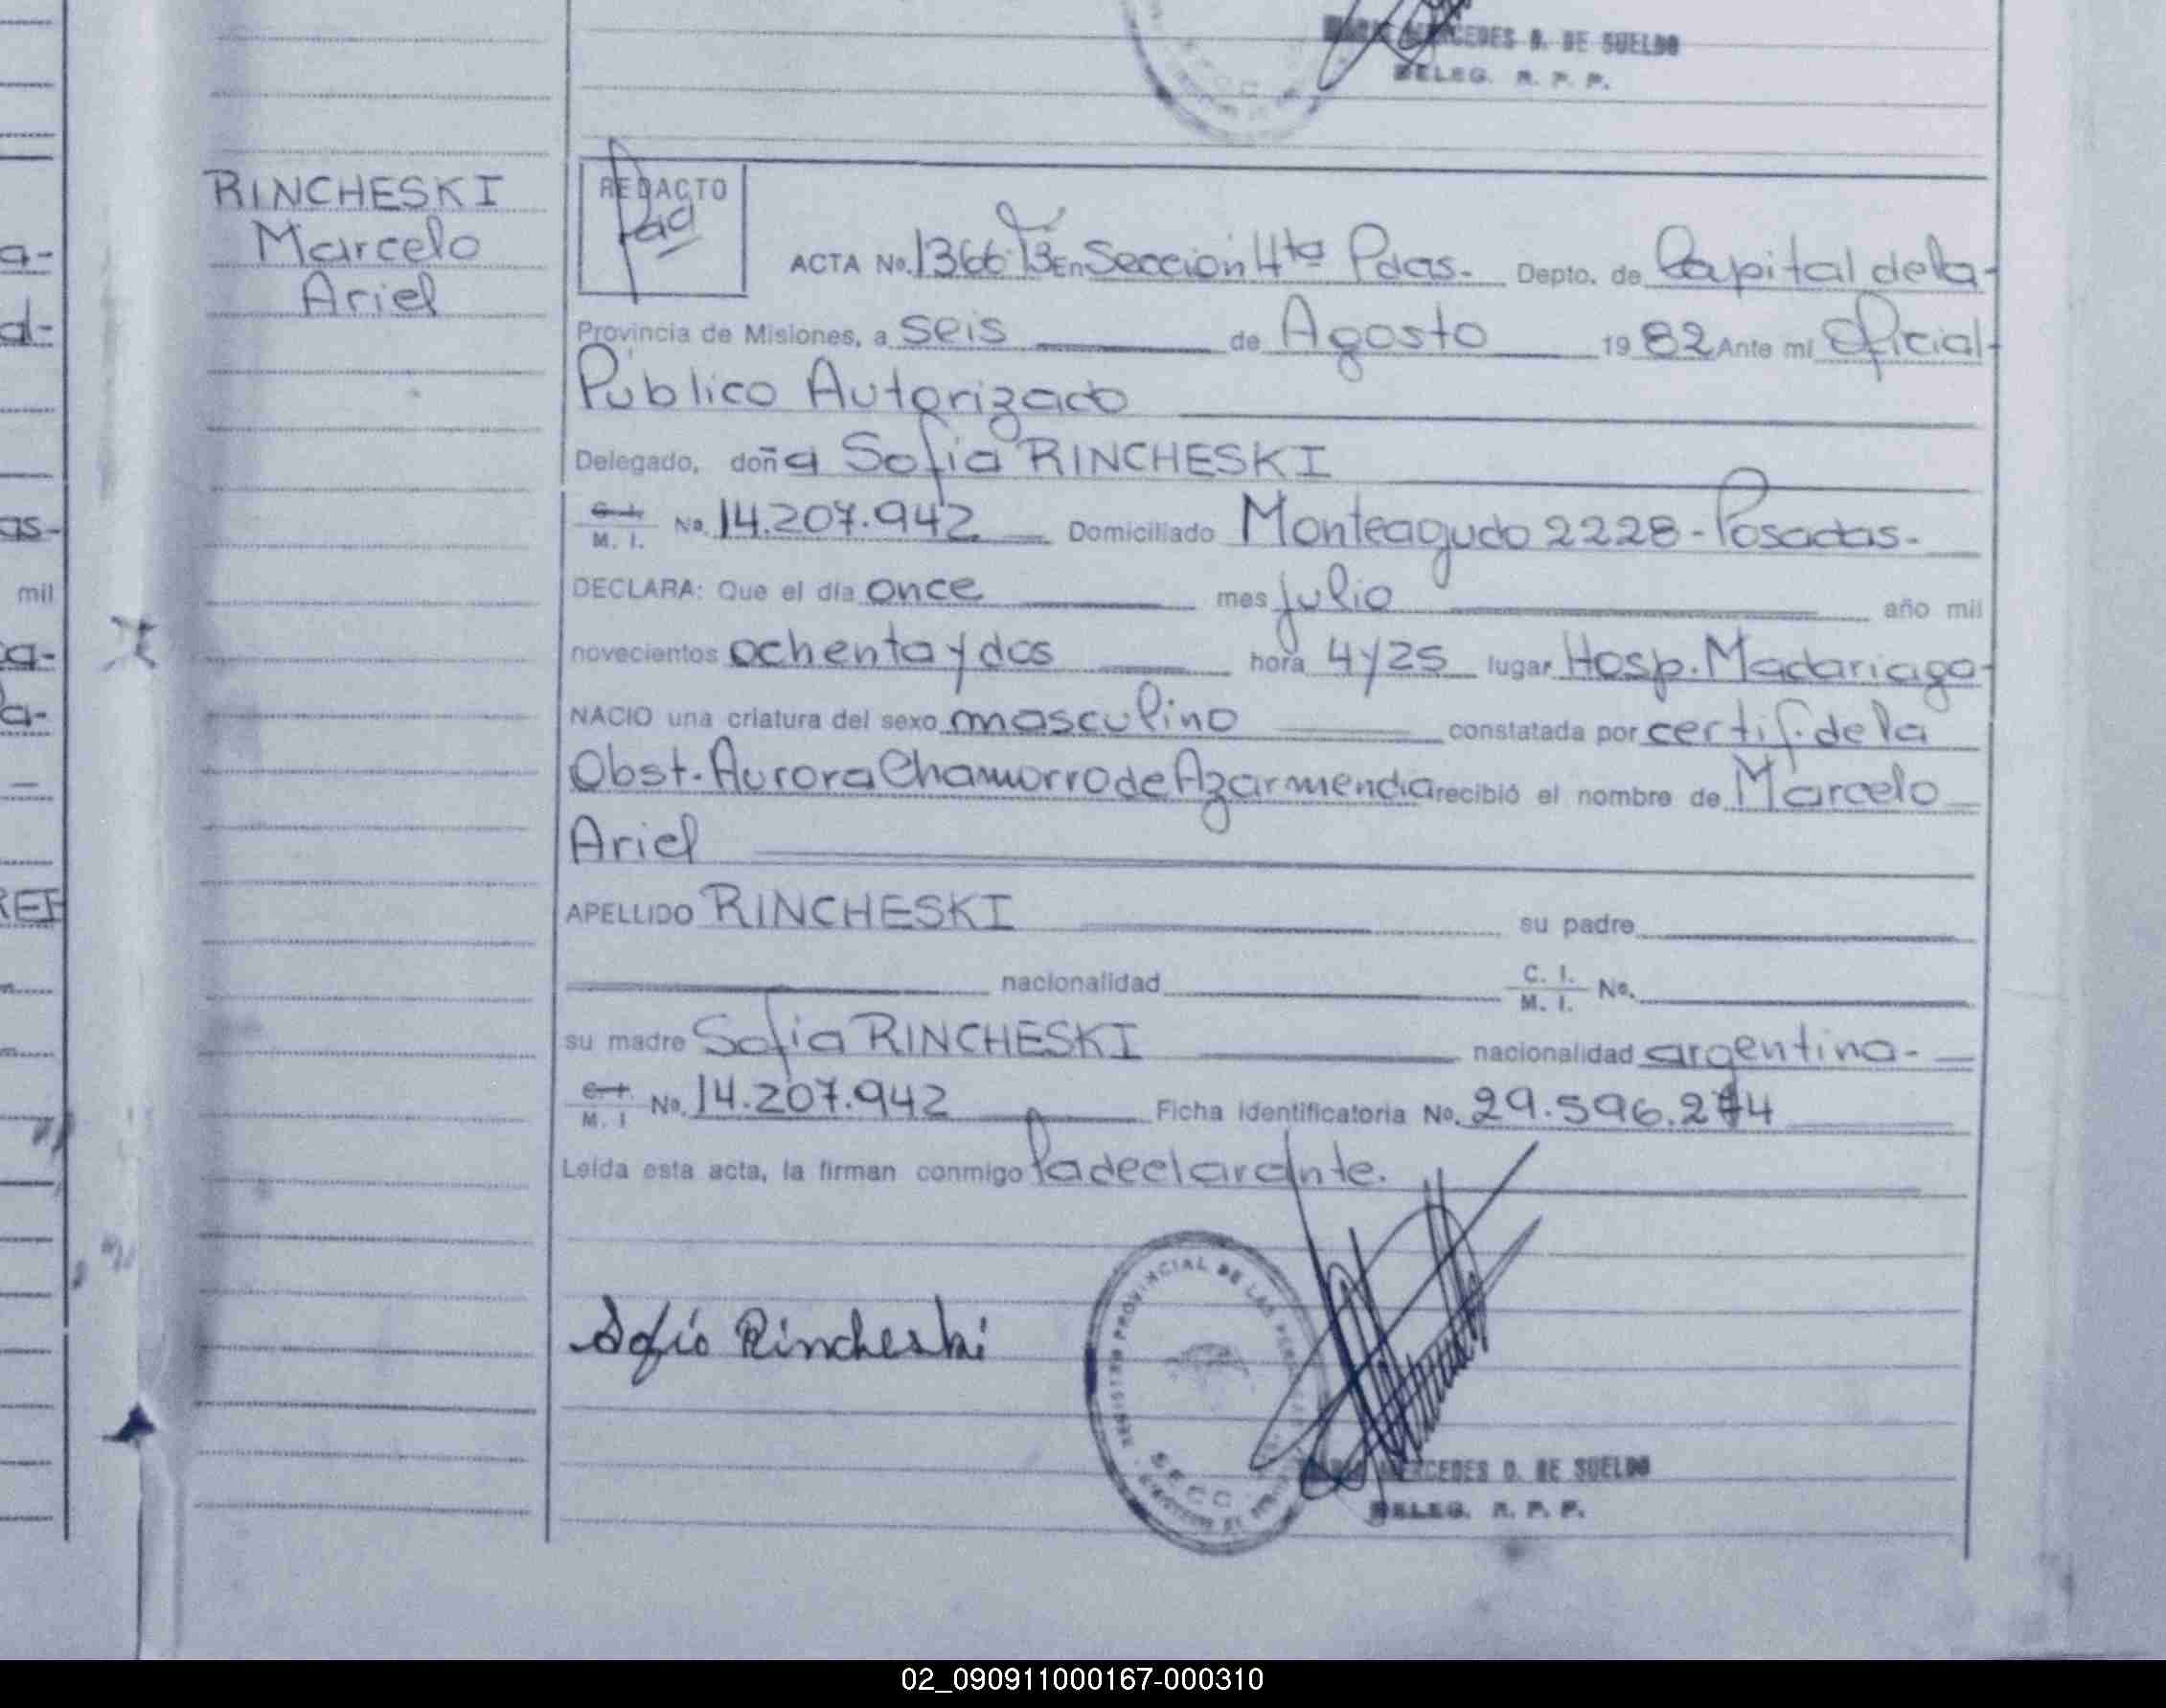 MERCEDES D. DE SUELDO
DELEG. R. P. P.
RINCHESKI
Marcelo
Ariel
REDACTO
ACTA No. 1366 T3 En Sección 4ta Pdas. Depto. de Capital de la-
Provincia de Misiones, a seis de Agosto 1982 Ante mi Oficial-
Público Autorizado
Delegado, doña Sofia RINCHESKI
C. I. M. I. No. 14.207.942 Domiciliado Monteagudo 2228-Posadas.-
DECLARA: Que el día once mes julio año mil
novecientos ochenta y dos hora 4 y 25 lugar Hosp. Madariaga-
NACIO una criatura del sexo masculino constatada por certif. de la
Obst. Aurora Chamorro de Azarmendia recibió el nombre de Marcelo
Ariel
APELLIDO RINCHESKI su padre
nacionalidad C. I. M. I. No.
su madre Sofia RINCHESKI nacionalidad argentina.-
C. I. M. I No. 14.207.942 Ficha identificatoria No. 29.596.274
Leída esta acta, la firman conmigo la declarante.
Sofia Rincheski
REGISTRO PROVINCIAL DE LAS
SECC.
MERCEDES D. DE SUELDO
DELEG. R. P. P.
a-
al-
as-
mil
a-
a-
REI
02_090911000167-000310